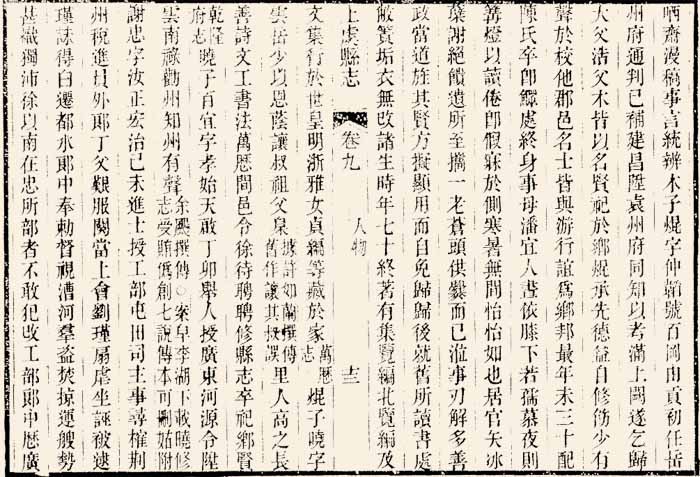 哂齋漫稿事言統辨木子焜字仲韜號百岡由貢初任岳
州府通判已補建昌陞袁州府同知以考滿上闕遂乞歸
大父浩父木皆以名賢祀於鄉焜承先德益自修飭少有
聲於校他郡邑名士皆與游行誼爲鄉邦最年未三十配
陳氏卒卽鰥處終身事母潘宜人晝依膝下若孺慕夜則
篝燈以讀倦卽假寐於側寒暑無間怡怡如也居官矢冰
蘖謝絕饋遺所至攜一老蒼頭供爨而已涖事刃解多善
政當道旌其賢方擬顯用而自免歸歸後就舊所讀書處
敝簀垢衣無改諸生時年七十終著有集覽編北覽編及
上虞縣志 卷九 人物 十三
文集行於世皇明浙雅女貞編等藏於家萬曆志焜子曉字
雲岳少以恩蔭讓叔祖父梟據許如蘭撰傳舊作讓其叔誤里人高之長
善詩文工書法萬曆間邑令徐待聘聘修縣志卒祀鄉賢
乾隆府志曉子百宜字孝始天啟丁卯舉人授廣東河源令陞
雲南祿勸州知州有聲余颺撰傳○案皁李湖下載曉修志受賄低創七說傳本可刪始附
謝忠字汝正宏治己未進士授工部屯田司主事尋榷荆
州稅進員外郞丁父艱服闋當上會劉瑾扇虐坐誣被逮
瑾誅得白遷都水郞中奉勅督視漕河羣盜焚掠運艘勢
甚熾獨沛徐以南在忠所部者不敢犯改工部郞中歷廣